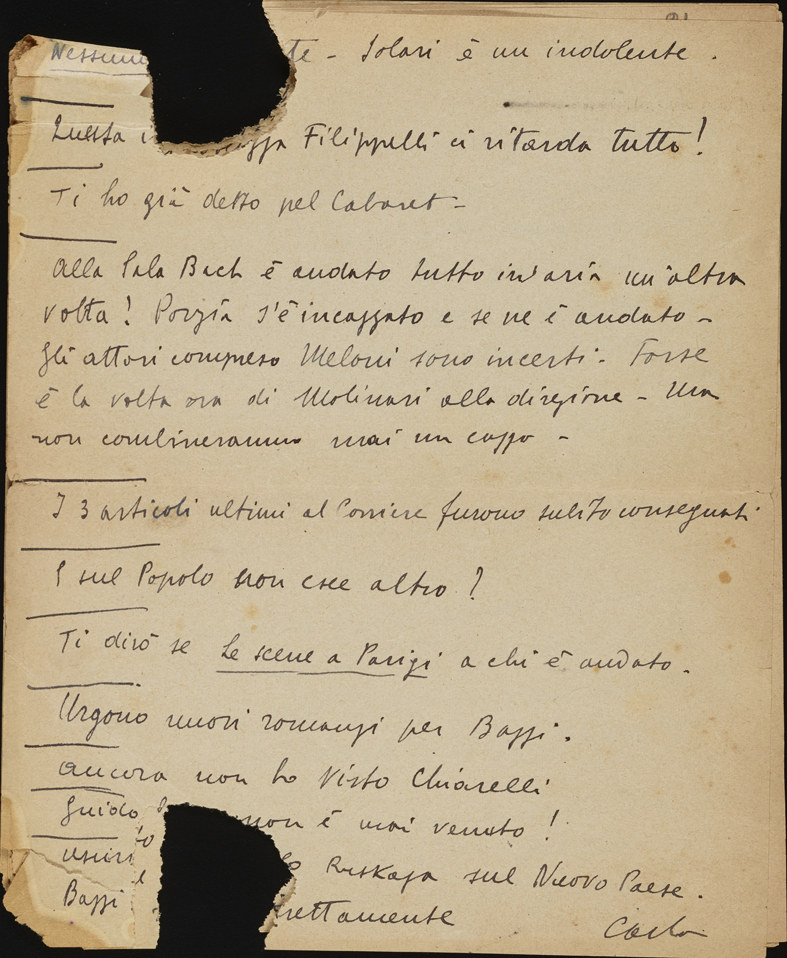 Nessun te - Solari è un indolente.
Questa Filippelli ci ritarda tutto!
Ti ho già detto pel Cabaret -
Alla Sala Bach è andato tutto in aria un'altra
volta! Porzia s'è incazzato e se ne è andato -
Gli attori compreso Meloni sono incerti - Forse
è la volta ora di Molinari alla direzione - Ma
non combineranno mai un cazzo -
I 3 articoli ultimi al Corriere furono subito consegnati
E sul Popolo non esce altro?
Ti dirò se Le scene a Parigi a chi è andato.
Urgono nuovi romanzi per Bazzi.
Ancora non ho visto Chiarelli
Guido non è mai venuto!
Ruskaja sul Nuovo Paese.
Bazzi rettamente
Carlo